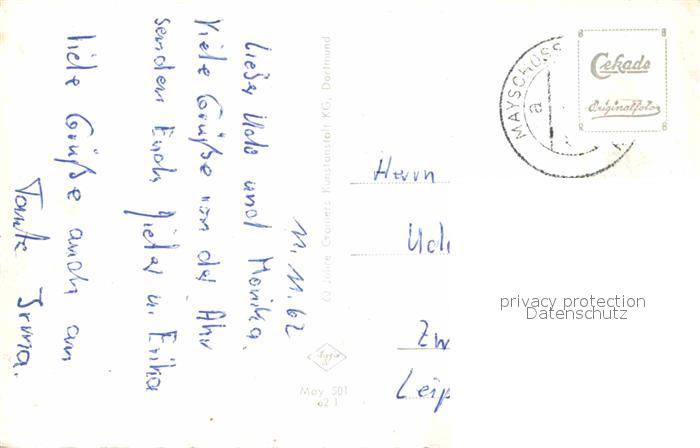 11.11.62
Lieber Udo und Monika.
Viele Grüße von der Ahr
senden Euch Dieter u. Erika
liebe Grüße auch an
Tante Irma.
60 Jahre Cramers Kunstanstalt KG, Dortmund
May 501
62 1
MAYSCHOSS
a
Cekade
Originalfoto
Herrn
Udo
Zw
Leip
privacy protection
Datenschutz